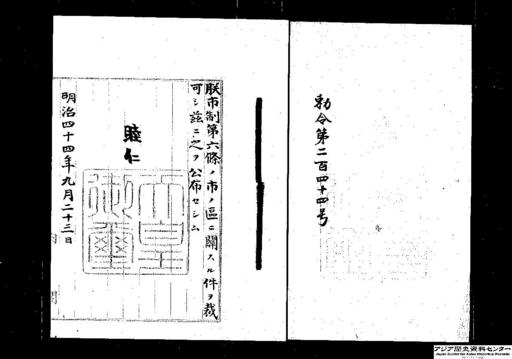 勅令第二百四十四号
朕市制第六條ノ市ノ區ニ關スル件ヲ裁
可シ茲ニ之ヲ公布セシム
睦仁
天皇御璽
明治四十四年九月二十三日
アジア歴史資料センター
Japan Center for Asian Historical Records